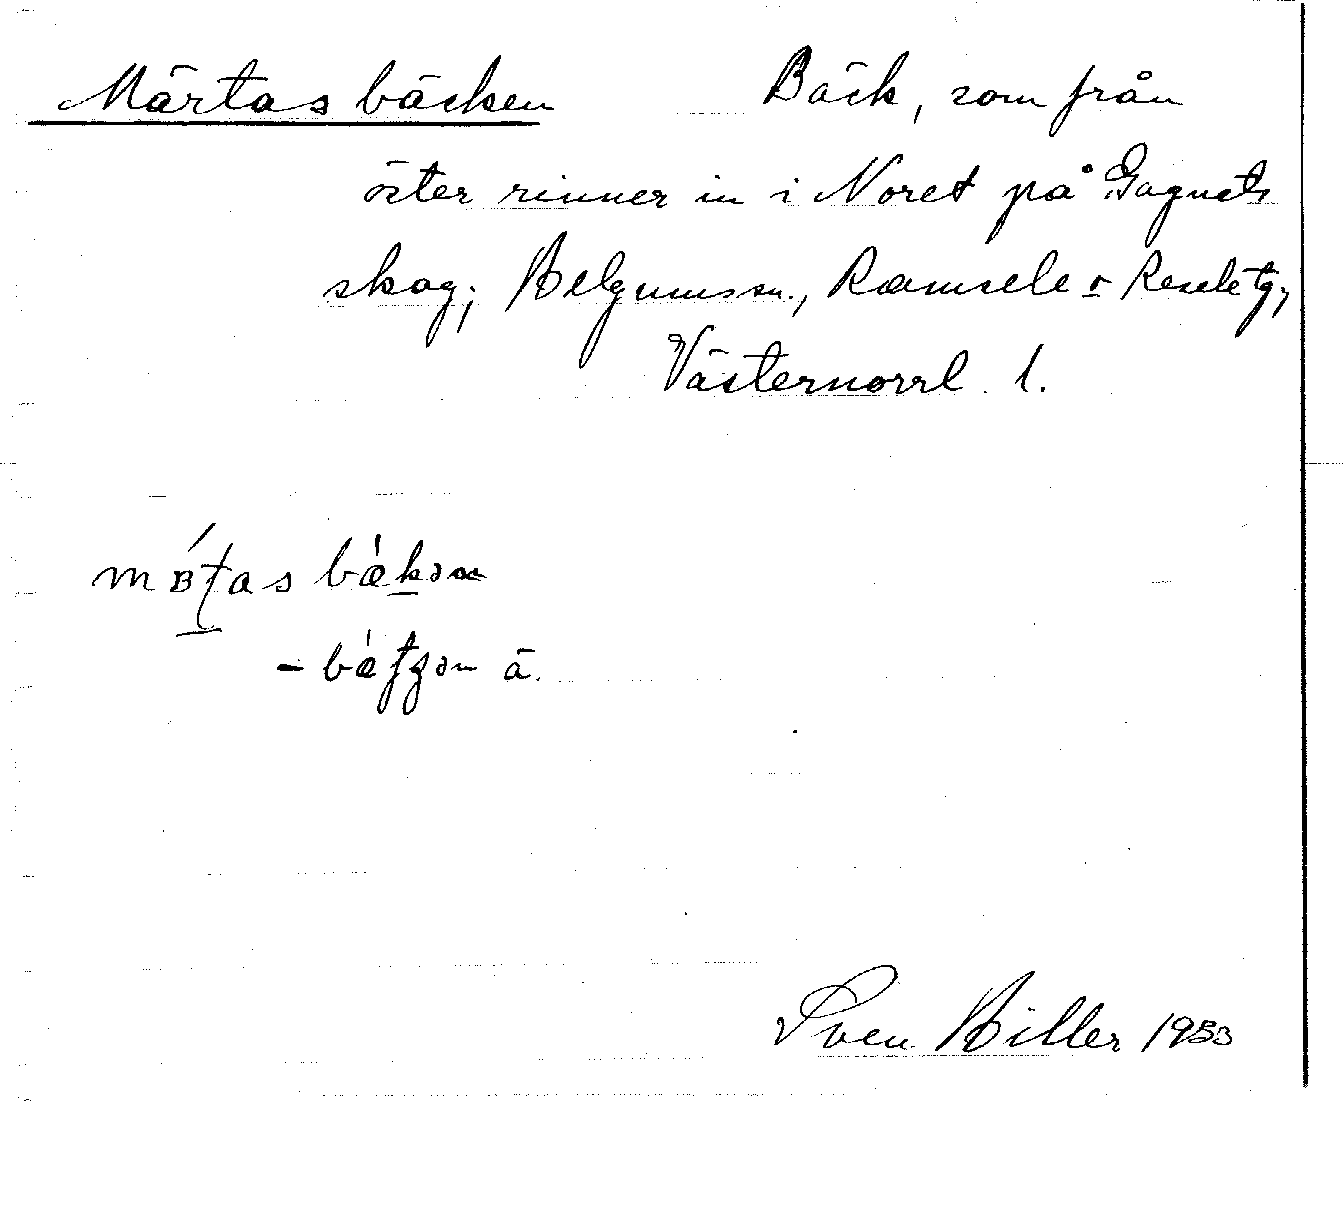 Märtas bäcken Bäck, som från
öster rinner in i Noret på Gagnets
skog; Helgumssn., Ramsele o Resele tg,
Västernorrl. l.
bǽkən
ä.
Sven Hiller 1933